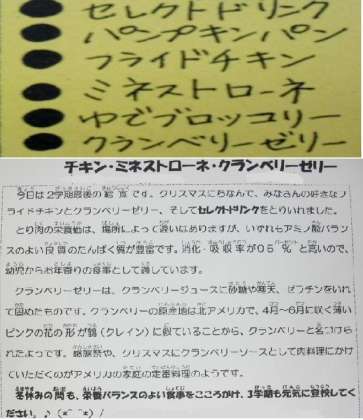 セレクトドリンク
パンプキンパン
フライドチキン
ミネストローネ
ゆでブロッコリー
クランベリーゼリー
チキン・ミネストローネ・クランベリーゼリー
今日は2学期最後の給食です。クリスマスにちなんで、みなさんの好きなフ
ライドチキンとクランベリーゼリー、そしてセレクトドリンクをとりいれました。
とり肉の栄養価は、場所によって違いはありますが、いずれもアミノ酸バラン
スのよい良質のたんぱく質が豊富です。消化・吸収率が95%と高いので、
幼児からお年寄りの食事として適しています。
クランベリーゼリーは、クランベリージュースに砂糖や寒天、ゼラチンをいれ
て固めたものです。クランベリーの原産地は北アメリカで、4月〜6月に咲く薄い
ピンクの花の形が鶴(クレイン)に似ていることから、クランベリーと名づけら
れたようです。感謝祭や、クリスマスにクランベリーソースとして肉料理にかけ
ていただくのがアメリカの家庭の定番料理のようです。
冬休みの間も、栄養バランスのよい食事をこころがけ、3学期も元気に登校してく
ださい。♪